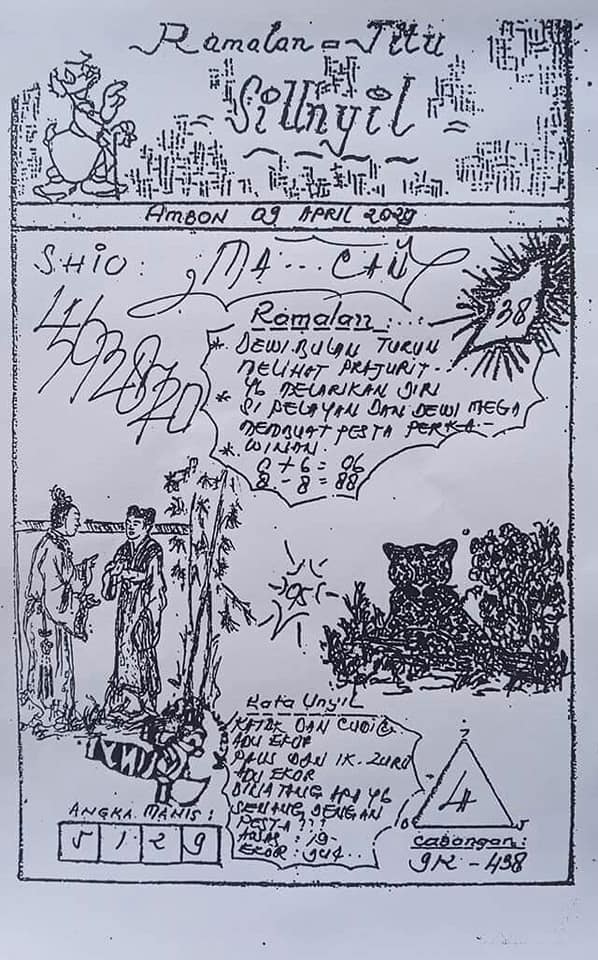 Ramalan = Jitu
= Si Unyil =
AMBON 09 APRIL 2029
SHIO : MA... CAN
38
Ramalan : ...
* DEWI BULAN TURUN
MELIHAT PRAJURIT..
* YG MELARIKAN DIRI
SI PELAYAN DAN DEWI MEGA
MEMBUAT PESTA PERKA-
* WINAN.
6 + 6 = 06
8 - 8 = 88
Kata Unyil
KATAK DAN
ADU EKOR
PAUS DAN IK.
ADU EKOR
BINATANG APA YG
SENANG DENGAN
PESTA ???
: 19-
EKOR : 944..
ANGKA MANIS :
5 1 2 9
7
4
0 5
Cabangan :
9K - 438